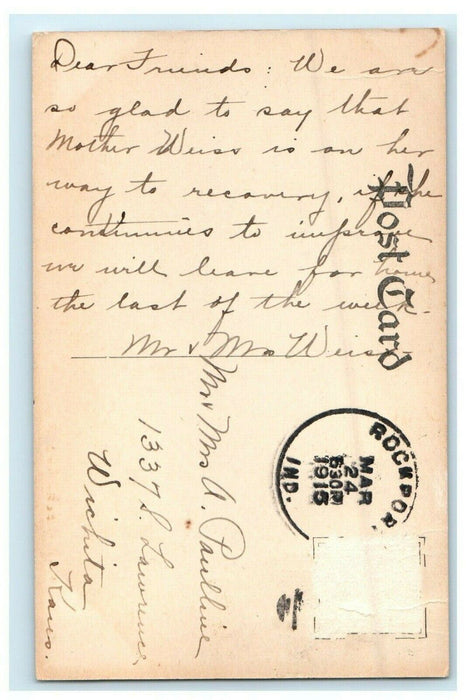 Dear Friends: We are
so glad to say that
Mother Weiss is on her
way to recovery, if she
continnies to improve
we will leave for home
the last of the week.
Mr & Mrs Weiss
Post Card
Mr & Mrs A. Pauline
1337 S. Lawrence
Wichita
Kans.
ROCKPOR
MAR
24
530P
1915
IND.